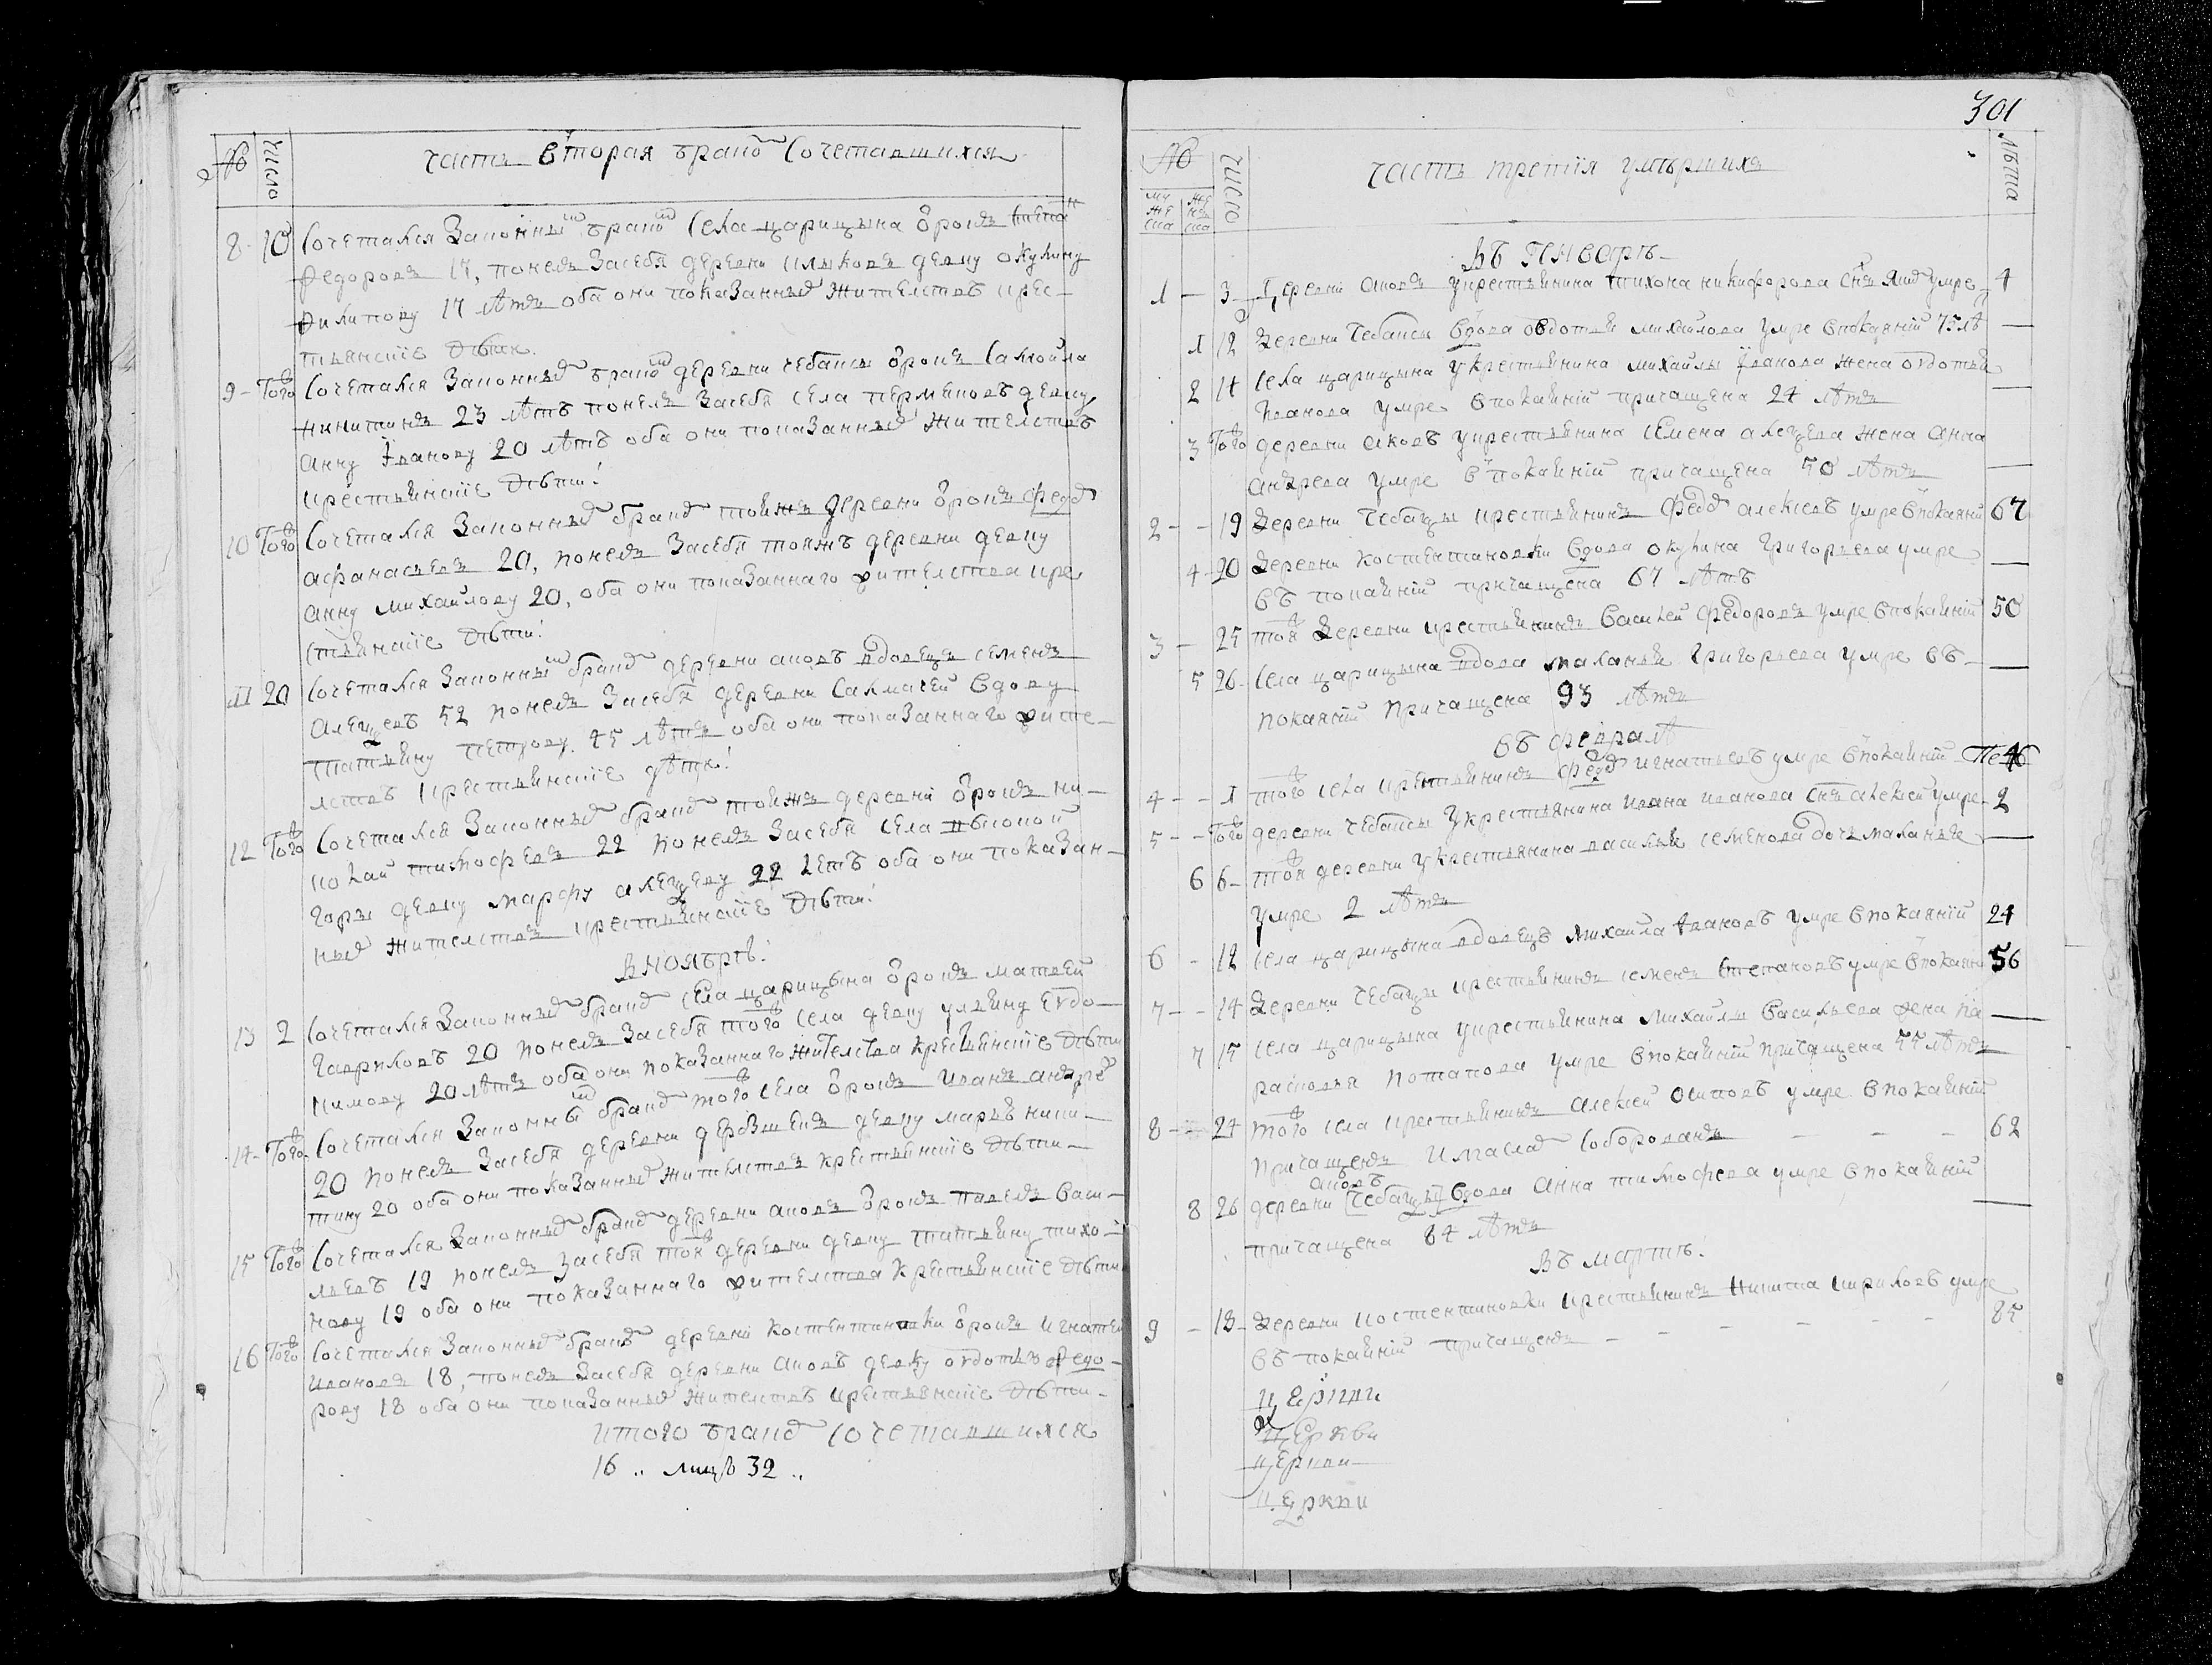 № число часть вторая браком сочетавшихся
8 10 Сочетался законным браком села царицына отрокъ степанъ
Федоровъ 17, понелъ засебя деревни девку окулину
Филипову 17 летъ оба они показанныхъ жителствъ крес-
тьянские дети
9 Того Сочетался законным браком деревни чебаксы отрокъ Самойла
никитинъ 23 летъ понелъ засебя села девку
анну Иванову 20 летъ оба они показанных жителствъ
крестьянские дети
10 Того Сочетался законным браком тоижъ деревни отрокъ Федоръ
афанасьевъ 20, понелъ засебя тояжъ деревни девку
анну михайлову 20, оба они показаннаго жителства кре
стьянские дети
11 20 Сочетался законным браком деревни аковъ вдовецъ семенъ
алеѯеевъ 52 понелъ засебя деревни Салмачей вдову
татьяну петрову 45 летъ оба они показаннаго жите-
лствъ крестьянские дети
12 Того Сочетался законным браком тоижъ деревни отрокъ ни-
колай тимофеевъ 22 понелъ засебя села
горы девку марфу алеѯееву 22 летъ оба они показан-
ныхъ жителствъ крестьянские дети
В ноябре
13 2 Сочетался законным браком села царицына отрокъ матвей
гавриловъ 20 понелъ засебя того села девку ульяну евдо-
кимову 20 летъ оба они показаннаго жителства крестьянские дети
14 Того Сочетался законным браком того села отрокъ иванъ андре
20 понелъ засебя деревни девку марью ники-
тину 20 оба они показанных жителствъ крестьянские дети
15 Того Сочетался законным браком деревни аковъ отрокъ павелъ васи-
льевъ 19 понелъ засебя тоя деревни девку татьяну тихо-
нову 19 оба они показаннаго жителства крестьянские дети
16 Того Сочетался законным браком деревни костентиновки отрокъ игнатей
ивановъ 18, понелъ засебя деревни аковъ девку овдотью федо-
рову 18 оба они показанных жителствъ крестьянские дети
итого браком сочетавшихся
16 .. лицъ 32 ..
301
№ число часть третия умершихъ лета
му же ска
же нъ ска
Въ генваре
1 3 Деревни аковъ укрестьянина тихона никифорова снъ умре 4
1 12 Деревни чебаксы вдова овдотья михайлова умре впокаянии 75 ле
2 14 Села царицына укрестьянина михайлы Иванова жена овдотья
Иванова умре впокаянии причащена 24 летъ
3 Того деревни аковъ укрестьянина семена алеѯеева жена анна
андреева умре впокаянии причащена 50 летъ
2 19 Деревни чебаѯы крестьянинъ Федоръ алексеевъ умре впокаянии 67
4 20 Деревни костентиновки вдова окулина григорьева умре
въ покаянии причащена 67 летъ
3 25 тоя Деревни крестьянинъ василей федоровъ умре впокаянии 50
5 26 Села царицына вдова маланья григорьева умре въ
покаянии причащена 93 летъ
въ феврале
4 1 того села крестьянинъ федоръ игнатьевъ умре впокаянии
5 Того деревни чебаксы укрестьянина ивана иванова снъ алексей умре 2
6 6 тоя деревни укрестьянина василья семенова дочь маланья
умре 2 летъ
6 12 Села царицына вдовецъ михайла Ивановъ умре впокаянии 24
7 14 Деревни чебаѯы крестьянинъ семенъ степановъ умре впокаянии 56
7 15 Села царицына укрестьянина михайлы васильева жена па
расковья потапова умре впокаянии причащена 55 летъ
8 24 того села крестьянинъ алексей осиповъ умре впокаянии
причащенъ имаслом соборованъ - - - 62
аковъ
8 26 деревни [чебаѯы] вдова анна тимофеева умре впокаянии
причащена 84 летъ
Въ марте
9 13 Деревни костентиновки крестьянинъ никита кириловъ умре
въ покаянии причащенъ - - - - - - 85
церкви
церкви
церкви
церкви